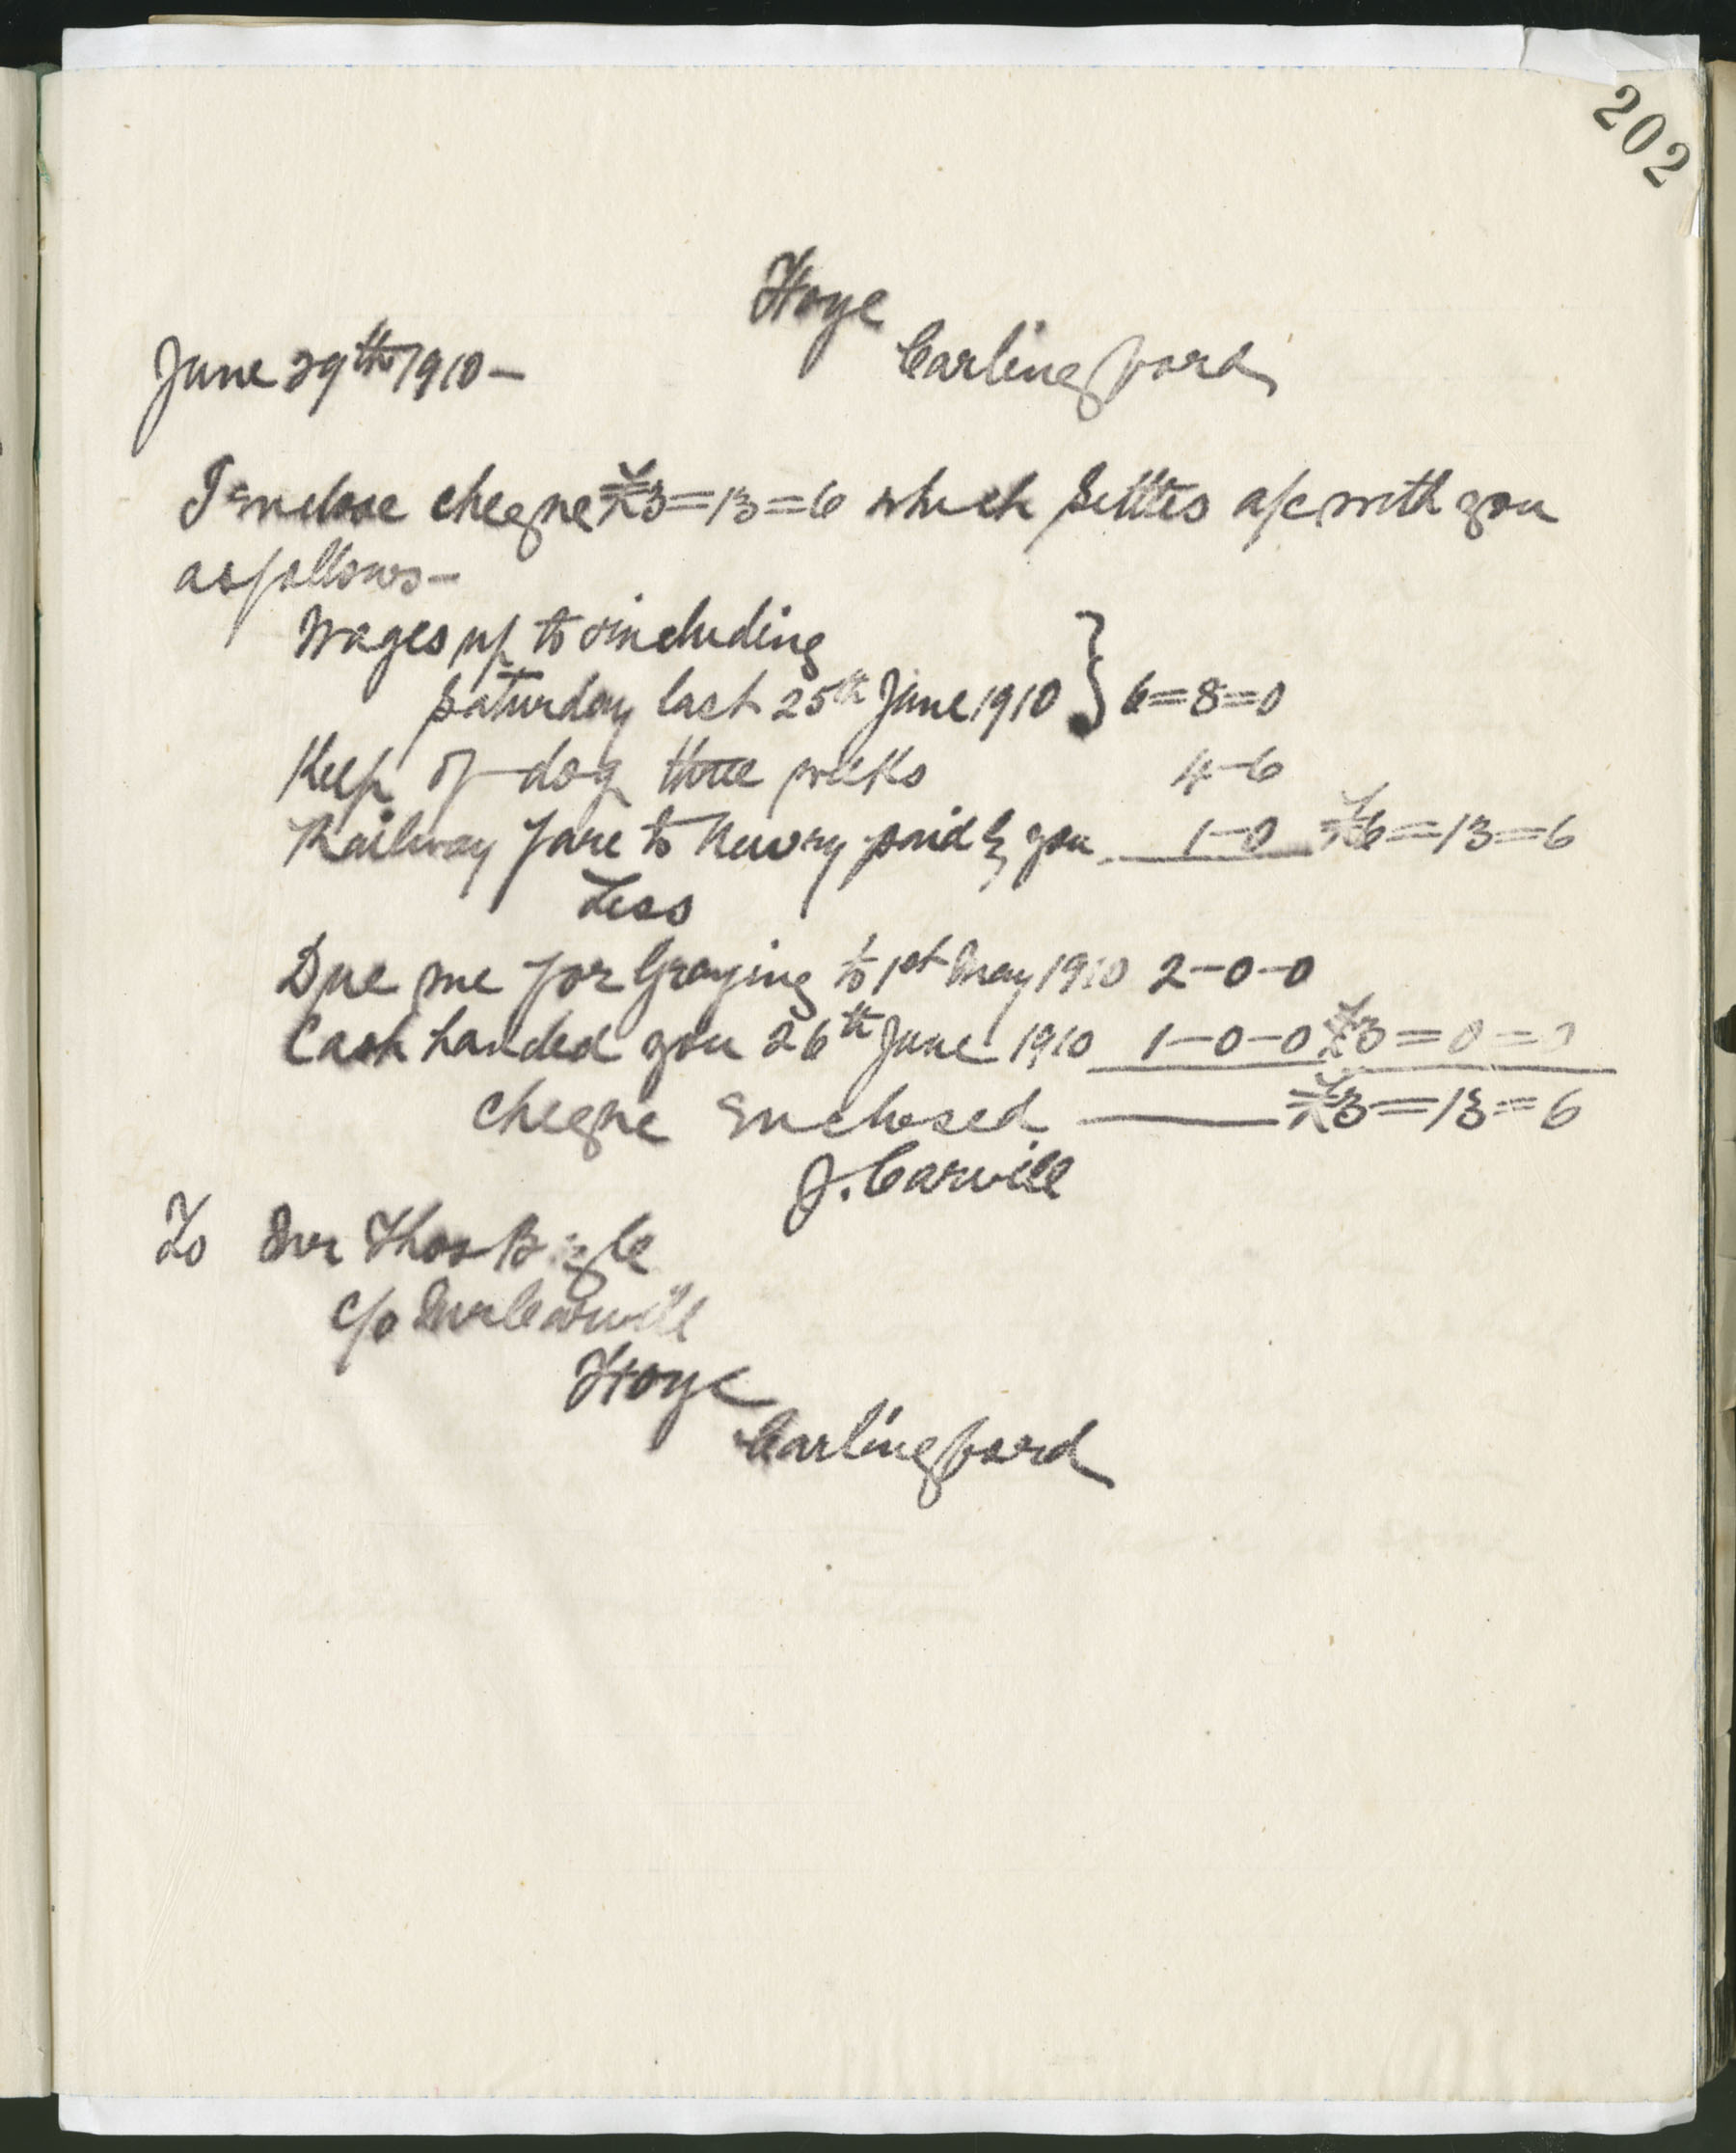 202
Hoye
Carlingford
June 29th 1910 —
I enclose cheque £3=13=6 which settles a/c with you
as follows —
Wages up to & including
Saturday last 25th June 1910 } 6=8=0
Keep of dog three weeks 4-6
Railway fare to Newry paid by you 1-0 £6=13=6
Less
Due me for Grazing to 1st May 1910 2-0-0
Cash handed you 26th June 1910 1-0-0 £3=0=0
Cheque Enclosed — £3=13=6
J. Carvill
To Mr Thos
c/o Mr Carvill
Hoye
Carlingford